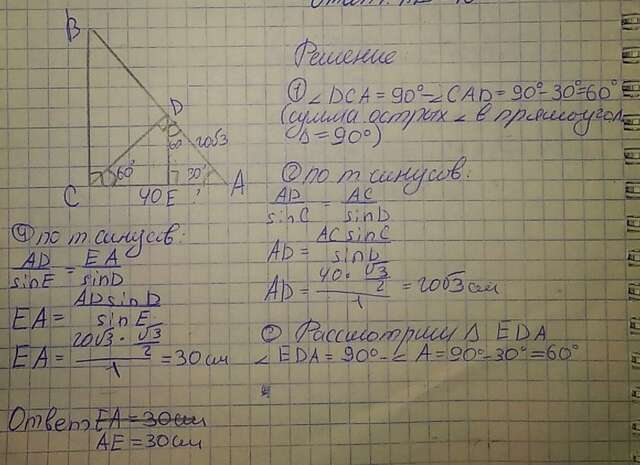 B
D
20√3
60°
60°
30°
C
40
E
A
Решение
① ∠DCA = 90° - ∠CAD = 90° - 30° = 60°
(сумма острых ∠ в прямоугол.
Δ = 90°)
② по т синусов:
AD/sinC = AC/sinD
AD = AC sinC / sinD
AD = 40 · √3/2 / 1 = 20√3 см
Рассмотрим Δ EDA
∠ EDA = 90° - ∠ A = 90° - 30° = 60°
④ по т синусов:
AD/sinE = EA/sinD
EA = AD sinD / sinE
EA = 20√3 · √3/2 / 1 = 30 см
Ответ: EA = 30см
AE = 30см